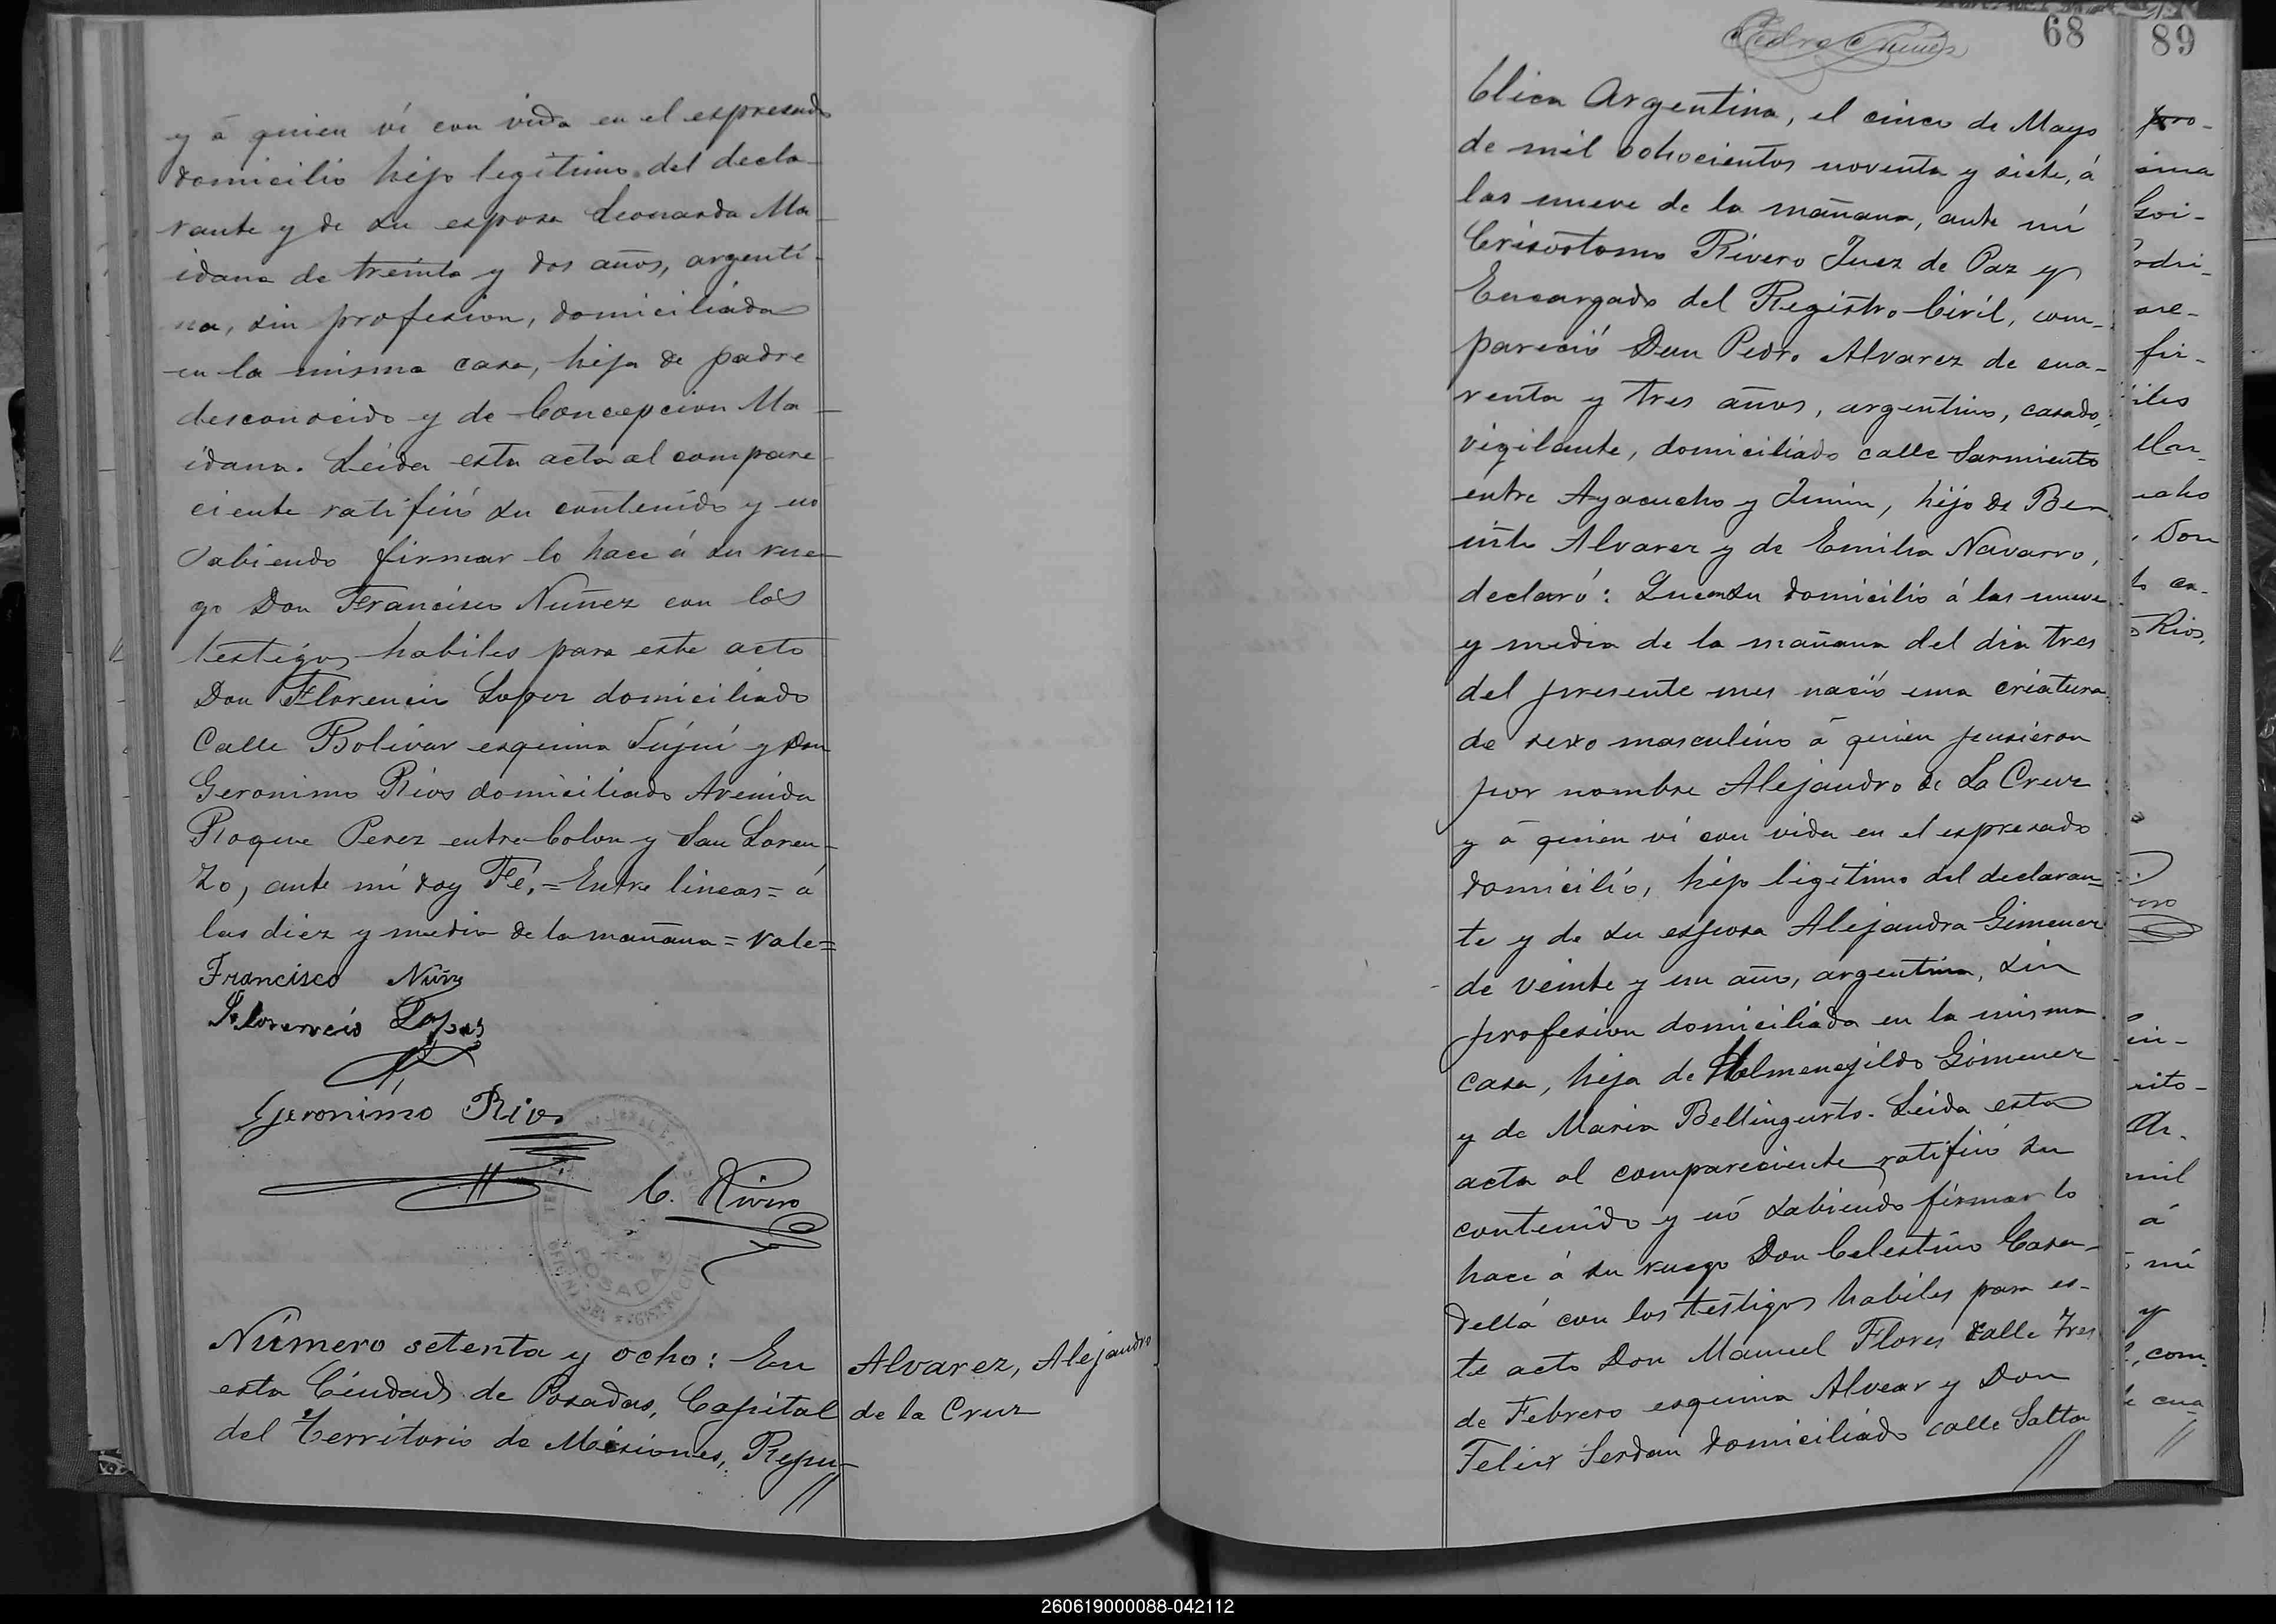 y á quien ví con vida en el espresado
domicilio hijo legitimo del decla-
rante y de su esposa Leonarda Ma-
idana de treinta y dos años, argenti-
na, sin profesion, domiciliada
en la misma casa, hija de padre
desconocido y de Concepcion Ma-
idana. Leida esta acta al compare-
ciente ratificó su contenido y no
sabiendo firmar lo hace á su rue-
go Don Francisco Nuñez con los
testigos habiles para este acto
Don Florencio Lopez domiciliado
Calle Bolivar esquina Jujui y Don
Geronimo Rios domiciliado Avenida
Roque Perez entre Colon y San Loren-
zo, ante mi doy Fé,=Entre lineas= á
las diez y media de la mañana= vale=
Francisco Nuñez
Florencio Lopez
Geronimo Rios
C. Rivero
POSADAS
Número setenta y ocho: En
esta Ciudad de Posadas, Capital
del Territorio de Misiones, Repu-
//
Alvarez, Alejandro
de la Cruz
68
blica Argentina, el cinco de Mayo
de mil ochocientos noventa y siete, á
las nueve de la mañana, ante mí
Crisostomo Rivero Juez de Paz y
Encargado del Registro Civil, com-
pareció Don Pedro Alvarez de cua-
renta y tres años, argentino, casado,
vigilante, domiciliado calle Sarmiento
entre Ayacucho y Junin, hijo de Ben-
ito Alvarez y de Emilia Navarro,
declaró: Que en su domicilio á las nueve
y media de la mañana del dia tres
del presente mes nació una criatura
de sexo masculino á quien pusieron
por nombre Alejandro de La Cruz
y á quien ví con vida en el espresado
domicilio, hijo legitimo del declaran-
te y de su esposa Alejandra Gimenez
de veinte y un año, argentina, sin
profesion domiciliada en la misma
casa, hija de Helmenejildo Gimenez
y de Maria Bellingurto. Leida esta
acta al compareciente ratificó su
contenido y nó sabiendo firmar lo
hace á su ruego Don Celestino Casa-
dellá con los testigos habiles para es-
te acto Don Manuel Flores calle Tres
de Febrero esquina Alvear y Don
Felix Serdan domiciliado calle Salta
//
89
pro-
Don
Rios,
mil
á
mí
y
com-
cua
//
260619000088-042112